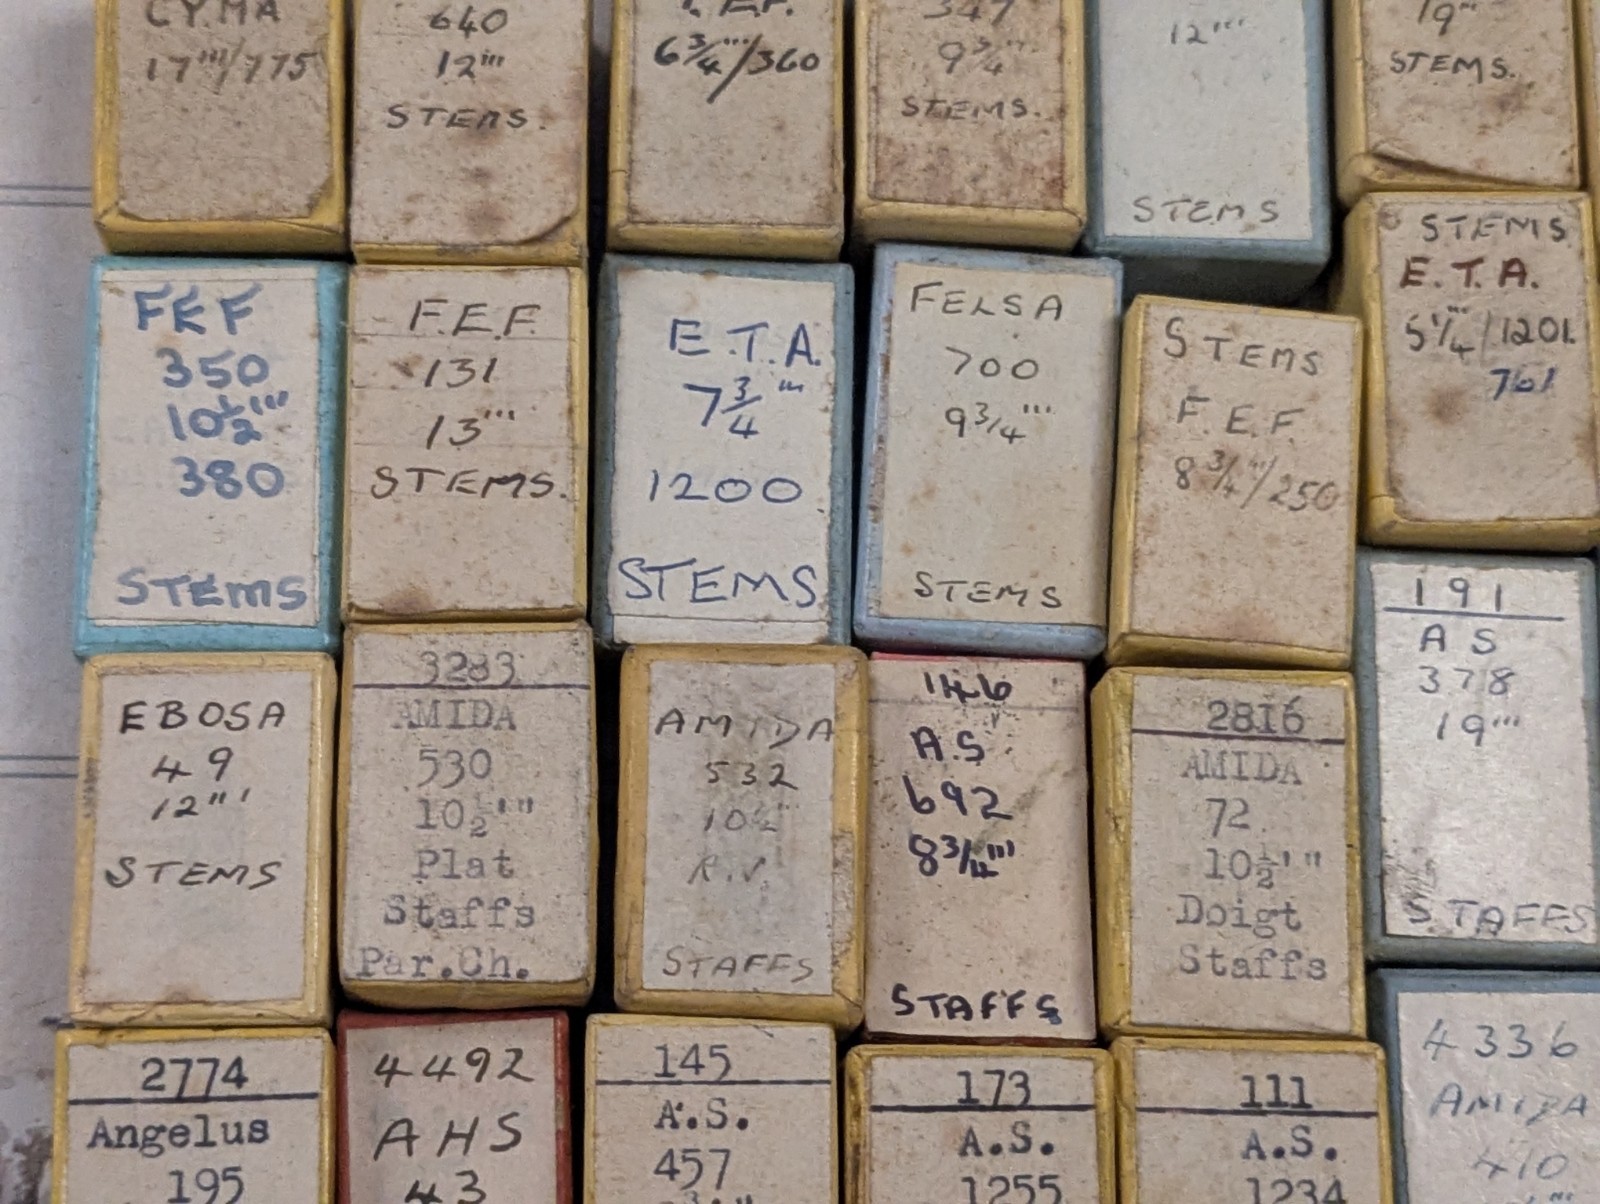 CYMA
17'''/775
640
12'''
STEMS.
6¾'''/360
347
9¾'''
STEMS.
12'''
STEMS
19'''
STEMS.
FEF
350
10½'''
380
STEMS
F.E.F.
131
13'''
STEMS.
E.T.A.
7¾'''
1200
STEMS
FELSA
700
9¾'''
STEMS
STEMS
F.E.F.
8¾'''/250
STEMS
E.T.A.
5¼'''/1201.
761
EBOSA
49
12'''
STEMS
3283
AMIDA
530
10½'''
Plat
Staffs
Par.Ch.
AMIDA
532
10½'''
R.V.
STAFFS
146
A.S.
692
8¾'''
STAFFS
2816
AMIDA
72
10½'''
Doigt
Staffs
191
AS
378
19'''
STAFFS
2774
Angelus
195
4492
AHS
43
145
A.S.
457
173
A.S.
1255
111
A.S.
1234
4336
AMIDA
410